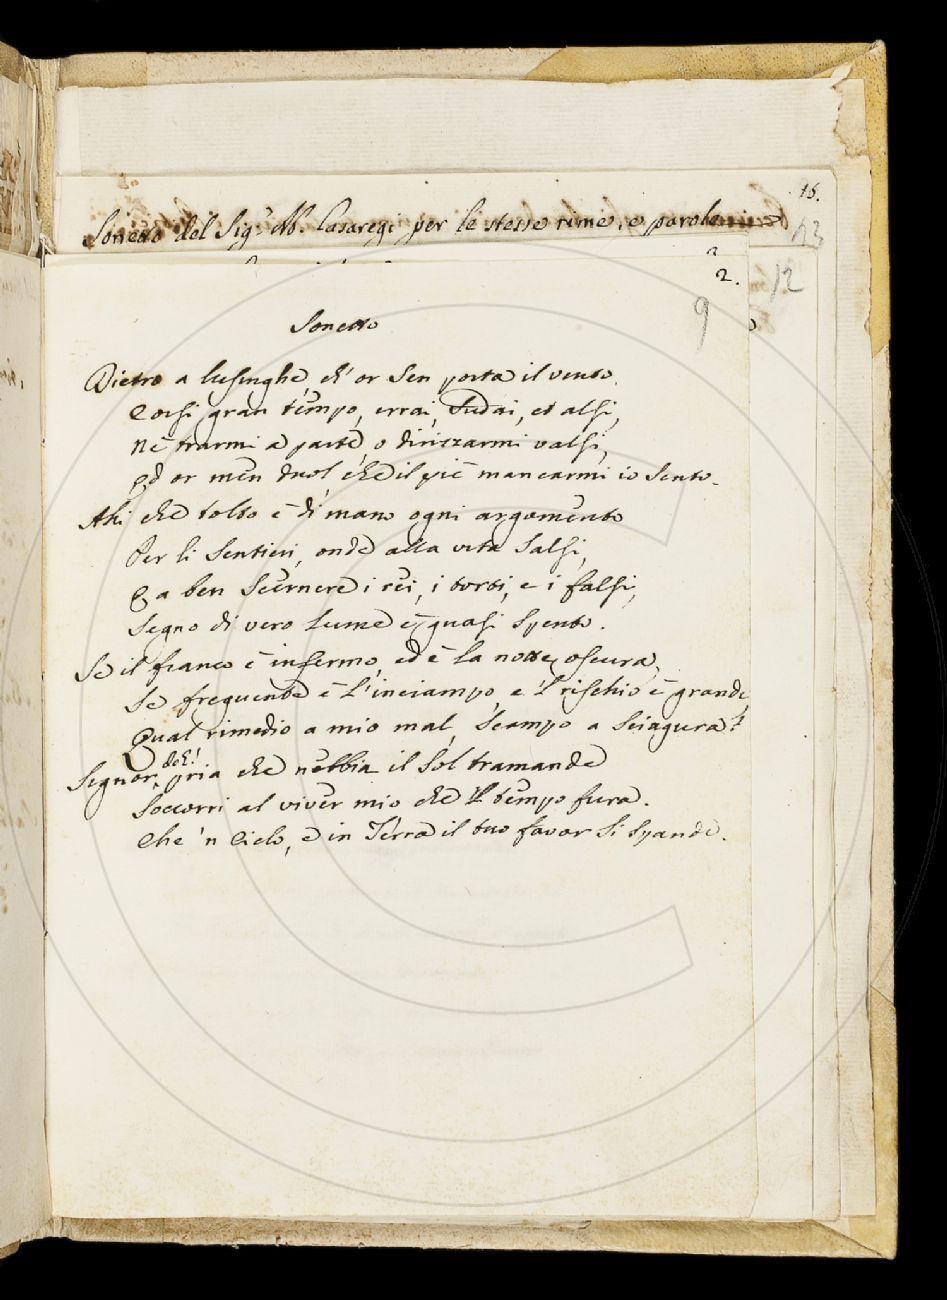 16.
Sonetto del Sig.r Ab. Casaregi per le stesse rime, e parole
13
2
2.
12
9
Sonetto
Dietro a lusinghe, ch'or sen porta il vento
Corsi gran tempo, errai, sudai, ed alsi,
Nè trarmi a parte, o dirizzarmi valsi,
Ed or men duol, che il piè mancarmi io sento.
Ahi che tolto è di mano ogni argomento
Per li sentieri, onde alla vita salsi,
E a ben scernere i rei, i torti, e i falsi,
Segno di vero lume è quasi spento.
Se il fianco è infermo, ed è la notte oscura,
Se frequente è l'inciampo, e 'l rischio è grande
Qual rimedio a mio mal, scampo a sciagura?
deh!
Signor, pria che nebbia il Sol tramande
Soccorri al viver mio che 'l tempo fura.
Che 'n Cielo, e in Terra il tuo favor si spande.